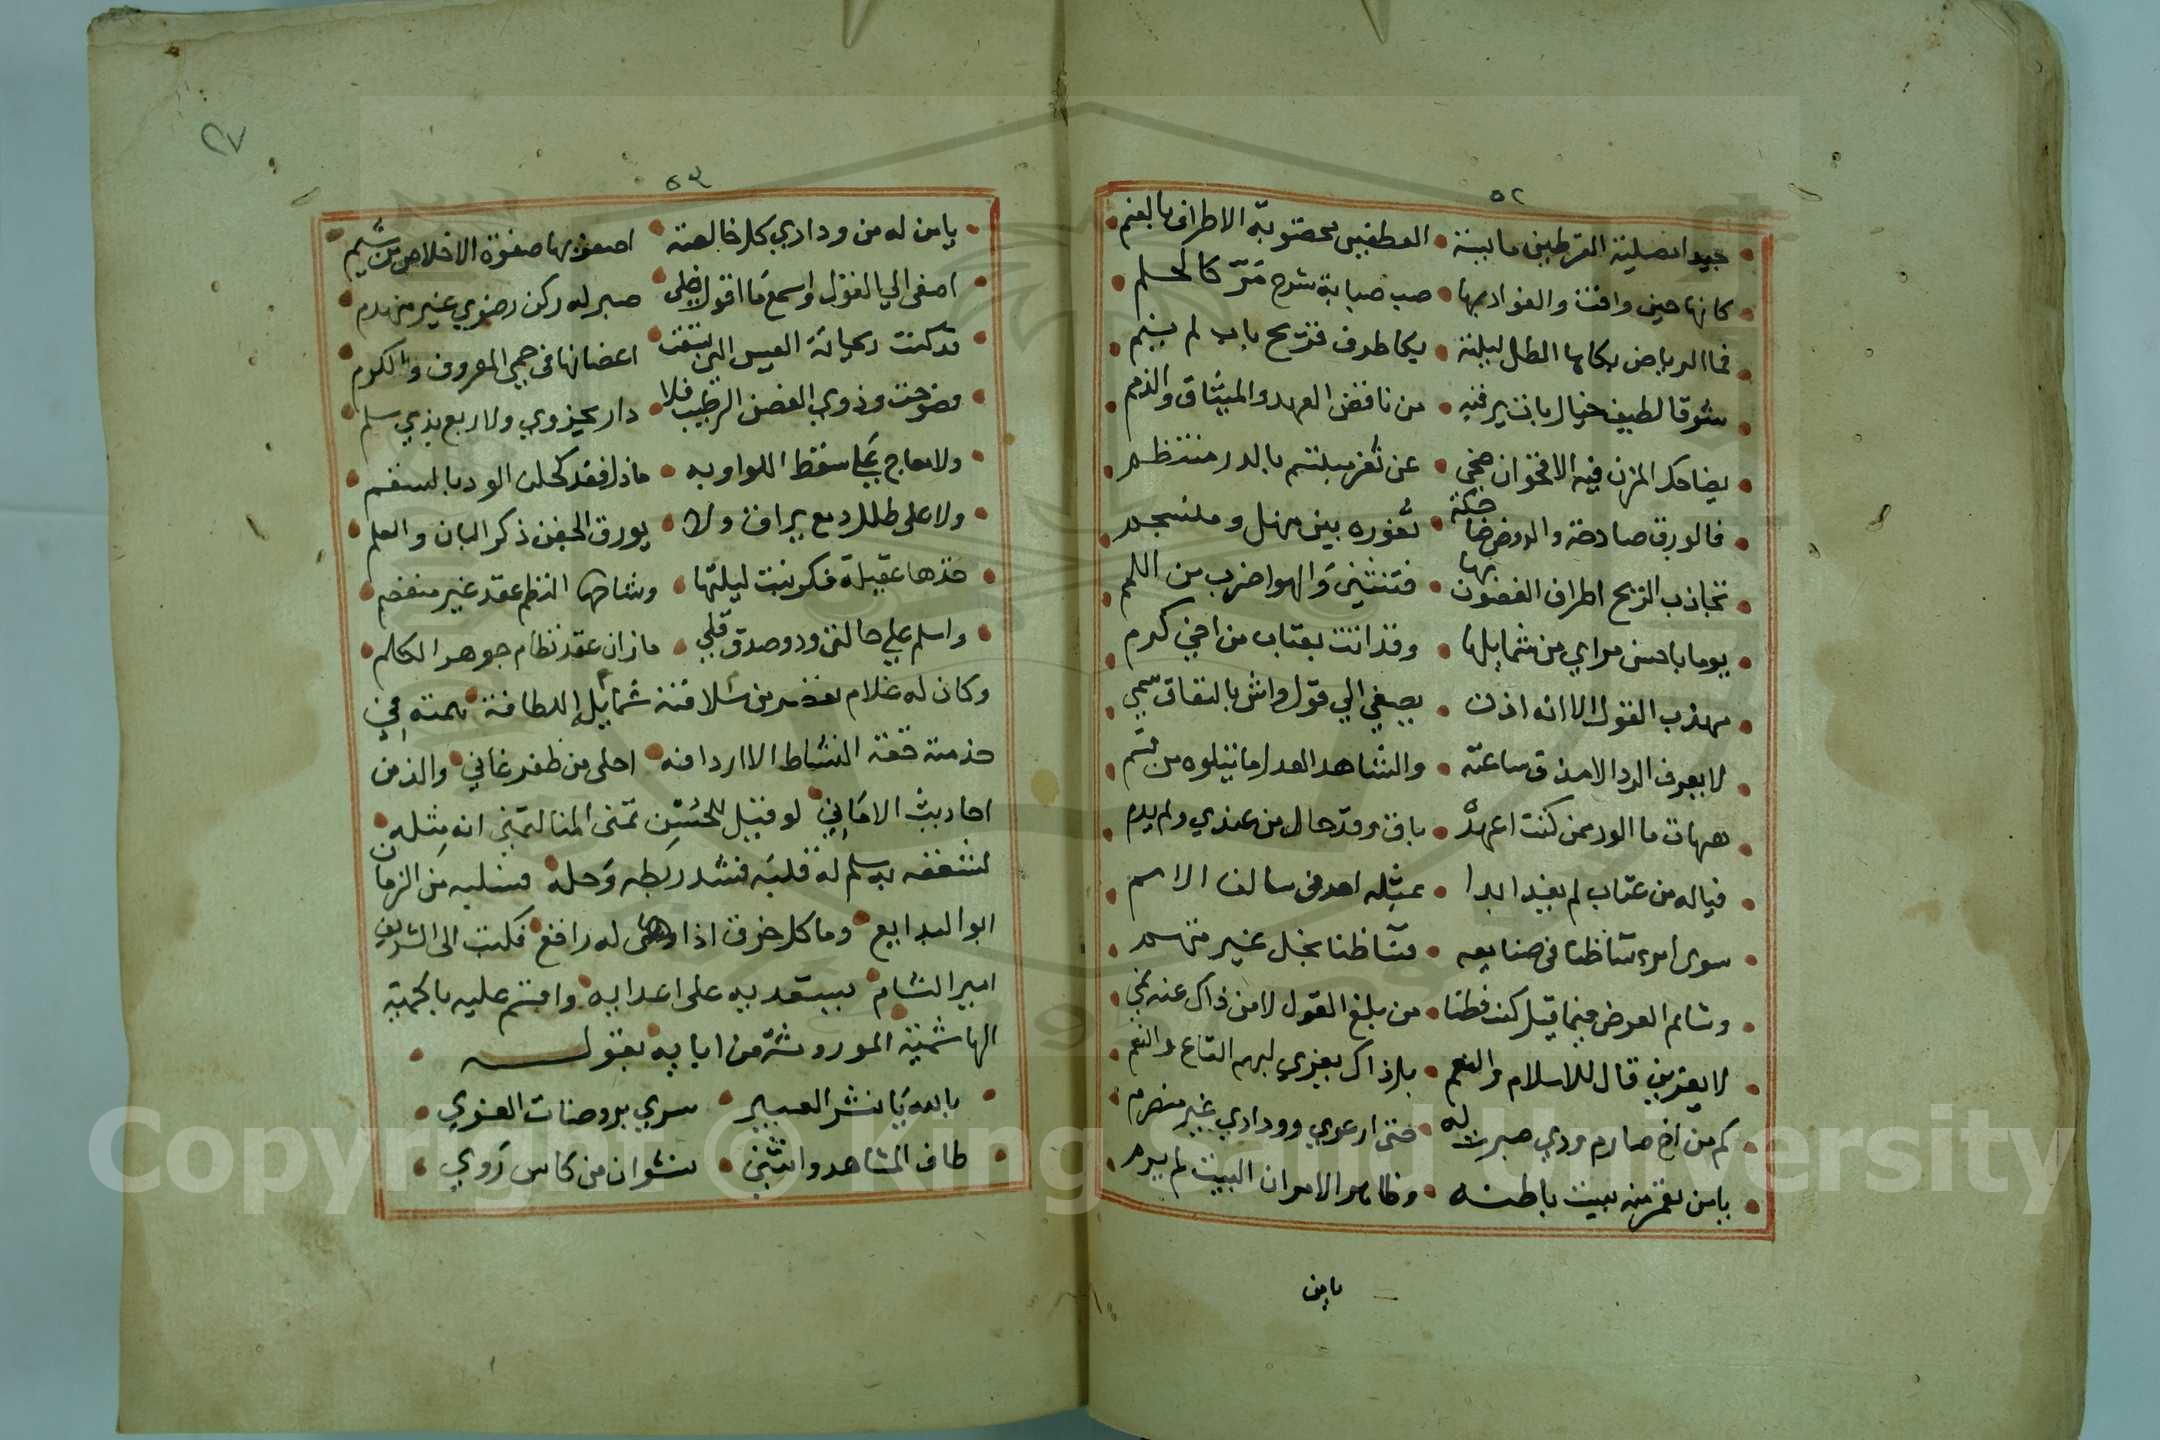 ٥٢
جيداء صلية القرطين مايسة • العطفين مخضوبة الاطراف بالعنم
كانها حين وافت والفواد بها • صب صبابة شرح مَرّ كالحلم
فما الرياض بكاها الطل ليلته • بكا طرف قريح بات لم ينم
شوقا لطيف خيال بات يرقبه • من ناقض العهد والميثاق والذمم
يضاحك المزن فيه الاقحوان ضحى • عن ثغر مبتسم بالدر منتظم
فالورق صادحة والروض ضاحكة • ثغوره بين منهل ومنسجم
تجاذب الريح اطراف الغصون بها • فتنثني والهوا ضرب من اللمم
يوما باحسن مراي من شمايلها • وقد اتت بعتاب من اخي كرم
مهذب القول الا انه اذن • يصغي الي قول واش بالنفاق سمي
لا يعرف الود الا مذق ساعته • والشاهد العدل ما يتلوه من
ههات ما الود ممن كنت اعهدُ • باق وقد حال من عندي ولم يدم
فياله من عتاب لم يفد ابدا • بمثله احد في سالف الامم
سوى امرء شاظنا في صنايعه • فشاظنا بخل غير متهم
وشاتم العرض فيما قيل كن فطنا • من بلغ القول لا من ذاك عنه نمي
لا يعزبن قال للاسلام والنعم • بل ذاك يعزي لبهم القاع والنعم
كم من اخ صارم ودي صبرت له • حتى ارعوي وودادي غير منصرم
يا من تغرمنه بيت باطنه • وظاهر الامر ان البيت لم يرم
يا من
٥٣
٢٧
يا من له من ودادي كل خالصة • اصفو بها صفوة الاخلاص من شيم
اصغى اليا لقول واسمع ما اقول فلي • صبر له ركن رضوي غير منهدم
قد كنت ريحانة العيس التي بسقت • اغصانها في حمى المعروف والكرم
فصوحت وذوي الغصن الرطيب فلا • دار بحزوي ولا ربع بذي سلم
ولا معاج علي سقط اللوا وبه • ماذا فقد كحلن الود بالسقم
ولا على طلل دمع يراق ولا • يورق الجفن ذكر البان والعلم
خذها عقيلة فكر بنت ليلتها • وشاحها النظم عقد غير منفصم
واسلم علي حالتي ود وصدق قلي • ما زان عقد نظام جوهر الكلم
وكان له غلام تعصر من سلافته شمايل اللطافة • نهمته في
خدمته خفة النشاط الا اردافه • احلى من ظفر غاني • والذ من
احاديث الاماني • لو قيل للحسن تمنى المنا لتمنى انه مثله •
لشغفه به سلم له قلبه فشد ربطه وحله • فسلبه من الزمان
ابو البدايع • وما كل خرق اذا وهى له راقع • فكتب الى الشريف
امير الشام • يستعديه على اعدايه • واقسم عليه بالحمية
الهاشمية الموروثة من ابايه بقوله •
بالله يا نشر العبير • سري بروضات الغوي •
طاف المشاهد وانثنى • نشوان من كاس رَوي •